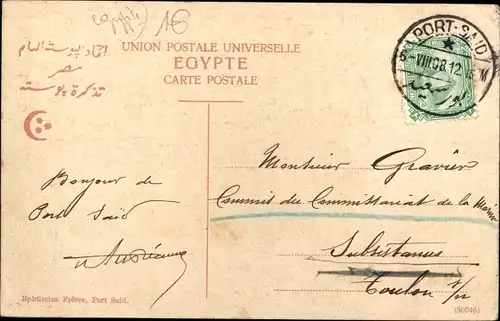 Egypte
16
UNION POSTALE UNIVERSELLE
EGYPTE
CARTE POSTALE
اتحاد بوستة العام
مصر
تذكرة بوستة
PORT-SAID
VIII 08 12 M
بور سعيد
Bonjour de
Port Saïd
Monsieur Gravier
Commis du Commissariat de la Marine
Subsistances
Toulon s/m
Ephtimios Frères, Port Said.
(50046)